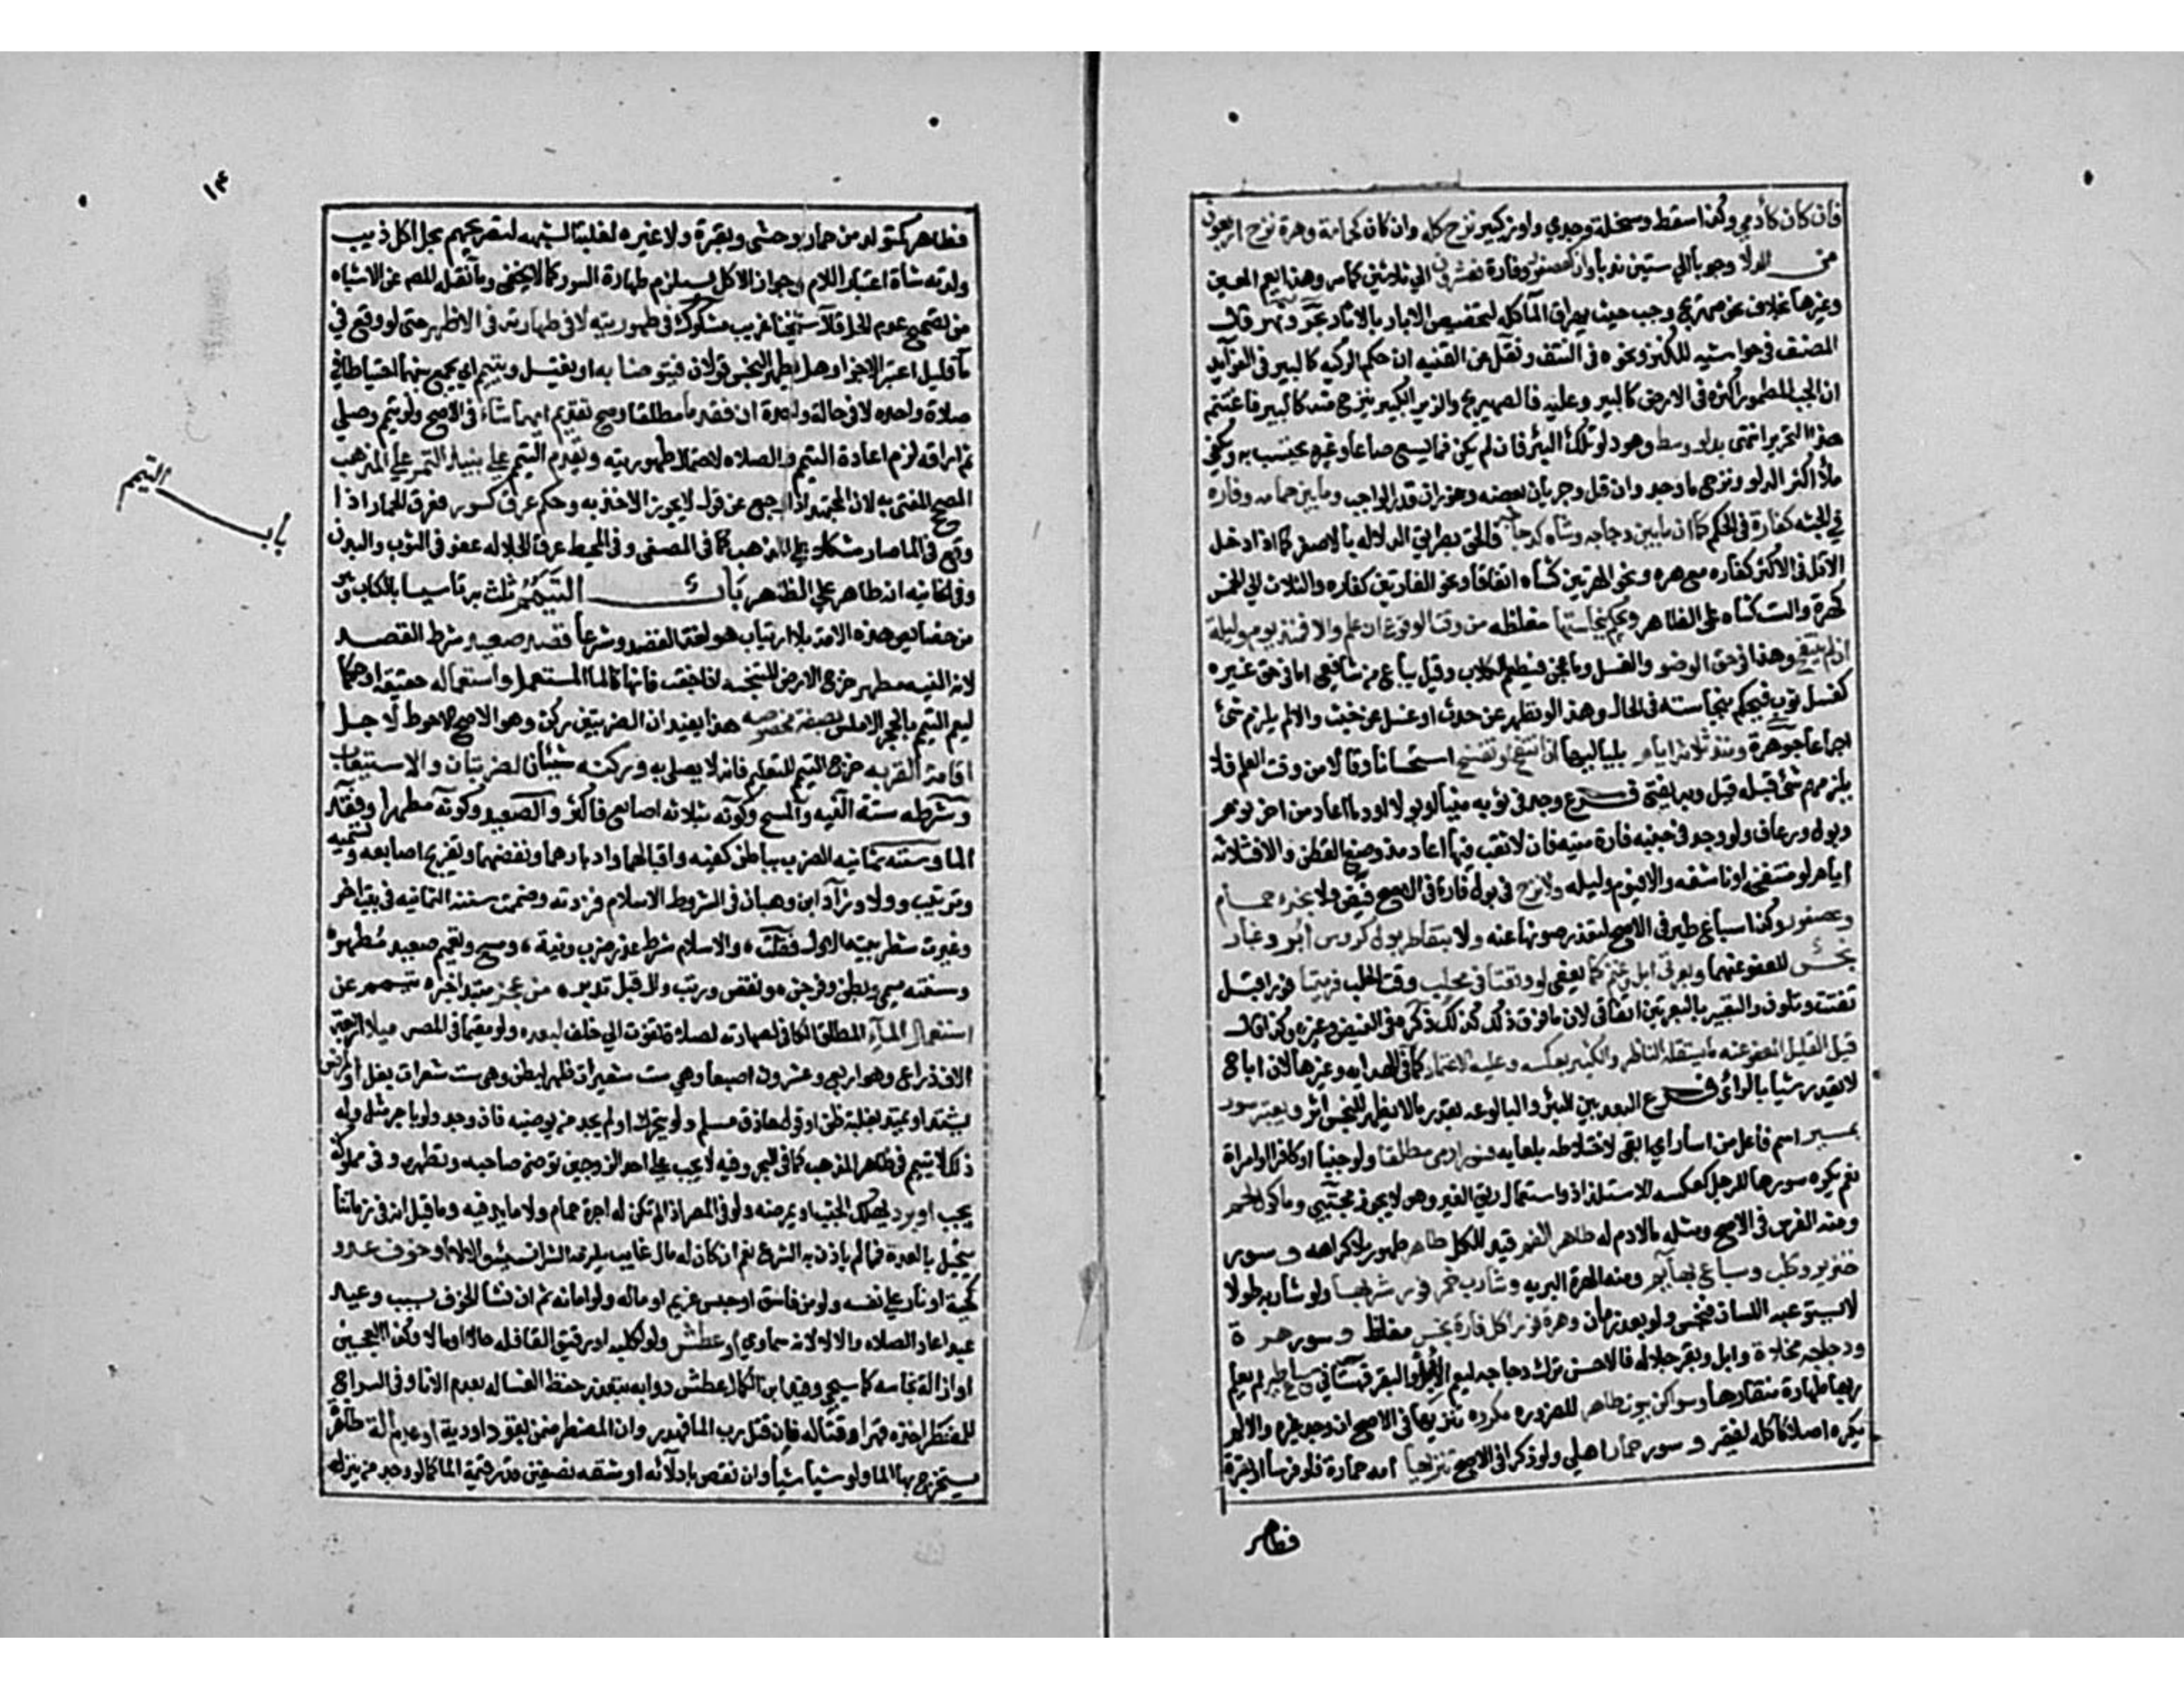 فان كان كآدمي وكذا سقط وسخلة وجدي واوز كبير نزح كله وان كان كحمامة وهرة نزح اربعون
من الدلا وجوبا الي ستين ندبا وان كعصفور وفارة فعشرون الي ثلاثين كما مر وهذا يعم المعين
وغيرها بخلاف نحو صهريج وحب حيث يهراق الماء كله لتخصيص الابار بالاثار بحر ونهر قال
المصنف في حواشيه للكنز ونحوه في النتف ونقل عن القنيه ان حكم الركيه كالبير وفي الفوائد
ان الحب المطمور اكثره في الارض كالبير وعليه فالصهريج والزير الكبير ينزح منه كالبير فاغتنم
هذا التحرير انتهى بدلو وسط وهو دلو تلك البئر فان لم يكن فما يسع صاعا وغيره يحتسب به ويكفي
ملأ اكثر الدلو ونزح ما وجد وان قل وجريان بعضه وغوران قدر الواجب وما بين حمامه وفاره
في الجثه كفارة في الحكم كما ان ما بين دجاجه وشاه كدجاجه فالحق بطريق الدلاله بالاصغر كما اذا دخل
الاقل في الاكثر كفاره مع هره ونحو الهرتين كشاه اتفاقا ونحو الفارتين كفاره والثلاث الي الخمس
كهرة والست كشاه على الظاهر ويحكم بنجاستها مغلظه من وقت الوقوع ان علم والا فمنذ يوم وليلة
ان لم ينتفخ وهذا في حق الوضو والغسل وما عجن فيطعم للكلاب وقيل يباع من شافعي اما في حق غيره
كغسل ثوب فيحكم بنجاسته في الحال وهذا لو تطهر عن حدث او غسل عن خبث والا لم يلزم شئ
اجماعا جوهرة ومنذ ثلاثة ايام بلياليها ان انتفخ او تفسخ استحسانا وقالا من وقت العلم فلا
يلزمهم شئ قبله قيل وبه يفتى فرع وجد في ثوبه منيا او بولا او دما اعاد من اخر نوم
وبول ورعاف ولو وجد في جبته فارة ميته فان لا نقب فيها اعاد منذ وضع القطن والا فثلاثة
ايام لو منتفخه او ناشفه والا فيوم وليله ولا نزح في بول فارة في الاصح فيض ولا بخرء حمام
وعصفور وكذا سباع طير في الاصح لتعذر صونها عنه ولا بتقاطر بول كروس ابر وغبار
نجس للعفو عنهما وبعرتي ابل وغنم كما يعفى لو وقعتا في محلب وقت الحلب فرميتا فورا قبل
تفتت وتلون والتعبير بالبعرتين اتفاقي لان ما فوق ذلك كذلك ذكره في الفيض وغيره ولذا قال
قيل القليل المعفو عنه ما يستقله الناظر والكثير بعكسه وعليه الاعتماد كما في الهدايه وغيرها لان اباح
لا يقدر شيا بالراي فرع البعد بين البئر والبالوعه بقدر ما لا يظهر للنجس اثر ويعتبر سور
بمسير اسم فاعل من اسار اي ابقى لاختلاطه بلعابه فسور ادمي مطلقا ولو جنبا او كافرا او امراة
نعم يكره سورها للرجل كعكسه للاستلذاذ واستعمال ريق الغير وهو لا يجوز مجتبى وماكول لحم
ومنه الفرس في الاصح ومثله ما لا دم له طاهر الفم قيد للكل طاهر طهور بلا كراهه و سور
خنزير وكلب وسباع بهايم ومنه الهرة البريه وشارب خمر فور شربها ولو شاربه طويلا
لا يستوعبه اللسان فنجس ولو بعد زمان وهرة فور اكل فارة نجس مغلظ و سور هرة
ودجاجه مخلاة وابل وبقر جلاله فالاحسن ترك دجاجه ليعم الابل والبقر قهستاني وسباع طير لم يعلم
ربها طهارة منقارها وسواكن بيوت طاهر للضرورة مكروه تنزيها في الاصح ان وجد غيره والا لم
يكره اصلا كاكله لفقير و سور حمار اهلي ولو ذكرا في الاصح تنزيها امه حمارة فلو فرسا او بقرة
فطاهر
١٣
فطاهر كمتولد من حمار وحشي وبقرة ولا عبره لغلبة الشبه لتصريحهم بحل اكل ذيب
ولدته شاة اعتبارا للام وجواز الاكل يستلزم طهارة السور كما لا يخفى وما نقله المص عن الاشباه
من تصحيح عدم الحل قال شيخنا غريب مشكوك في طهوريته لا في طهارته في الاظهر حتى لو وقع في
ما قليل اعتبر بالاجزا وهل يطهر النجس قولان فيتوضا به او يغتسل ويتيمم اي يجمع بينهما احتياطا في
صلاة واحده لا في حالة واحدة ان فقد ما مطلقا وصح تقديم ايهما شاء في الاصح ولو تيمم وصلي
ثم اراقه لزم اعادة التيمم والصلاه لاحتمال طهوريته ويقدم التيمم علي نبيذ التمر علي المذهب
المصحح المفتى به لان المجتهد اذا رجع عن قول لا يجوز الاخذ به وحكم عرق كسور فعرق الحمار اذا
وقع في الما صار مشكلا علي المذهب كما في المصفى وفي المحيط عرق الجلاله عفو في الثوب والبدن
وفي الخانيه انه طاهر علي الظاهر باب التيمم ثلث به تاسيا بالكتاب وهو
من خصايص هذه الامه بلا ارتياب هو لغة القصد وشرعا قصد صعيد شرط القصد
لانه النيه مطهر خرج الارض المتنجسه اذا جفت فانها كالما المستعمل واستعماله حقيقة او حكما
ليعم التيمم بالحجر الاملس بصفة مخصوصه هذا يفيد ان الضربتين ركن وهو الاصح الاحوط لاجل
اقامة القربه خرج التيمم للتعليم فانه لا يصلي به وركنه شيئان الضربتان والاستيعاب
وشرطه ستة النيه والمسح وكونه بثلاثه اصابع فاكثر والصعيد وكونه مطهرا وفقد
الما وسننه ثمانيه الضرب بباطن كفيه واقبالهما وادبارهما ونفضهما وتفريج اصابعه وتسميه
وترتيب وولا وزاد ابن وهبان في الشروط الاسلام فزدته وضممت سننه الثمانيه في بيت اخر
وغيرت شطر بيته الاول فقلت، والاسلام شرط عذر ضرب ونية، ومسح وتعميم صعيد مطهر
وسننه سمي وبطن وفرجن، ونفض ورتب وال اقبل تدبر، من عجز مبتدا خبره تيمم عن
استعمال الماء المطلق الكافي لطهارته لصلاة تفوت الي خلف لبعده ولو مقيما في المصر ميلا اربعة
الاف ذراع وهو اربع وعشرون اصبعا وهي ست شعيرات ظهر لبطن وهي ست شعرات بغل او لمرض
يشتد او يمتد بغلبة ظن او قول حاذق مسلم ولو بتحرك او لم يجد من يوضيه فان وجد ولو باجر مثل وله
ذلك لا يتيمم في ظاهر المذهب كما في البحر وفيه لا يجب علي احد الزوجين توضي صاحبه وتطهيره وفي مملوكه
يجب او برد يهلك الجنب او يمرضه ولو في المصر اذا لم تكن له اجرة حمام ولا ما يدفيه وما قيل انه في زماننا
يتحيل بالعدة فمما لم ياذن به الشرع نعم ان كان له مال غايب يلزمه الشرا نسيئة والا لا او خوف عدو
كحية او نار علي نفسه ولو من فاسق او حبس غريم او ماله ولو امانه ثم ان نشا الخوف بسبب وعيد
عبد اعاد الصلاه والا لا لانه سماوي او عطش ولو لكلبه او رفيق القافله حالا او مالا وكذا العجين
او ازالة نجاسه كما سيجي وقيد ابن الكمال عطش دوابه بتعذر حفظ الغساله بعدم الانا وفي السراج
للمضطر اخذه قهرا وقتاله فان قتل رب الما فهدر وان المضطر ضمن بقود او دية او عدم الة طاهرة
يستخرج بها الما ولو شيا شيا وان نقص بادلائه او شقه نصفين قدر قيمة الما كما لو وجد من ينزل
باب التيمم